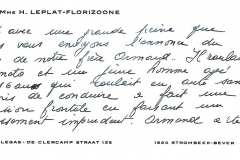 Mme H. LEPLAT-FLORIZOONE
avec une grande peine que
vous envoyons l'annonce du
de notre frère Armand. Il roulait
moto et un jeune homme avec
16 ans qui roulait en auto sans
de conduire a fait une
sion frontale en faisant un
ssement imprudent. Armand a été
LEGAS- DE CLERCAMP STRAAT 136 1820 STROMBEEK-BEVER